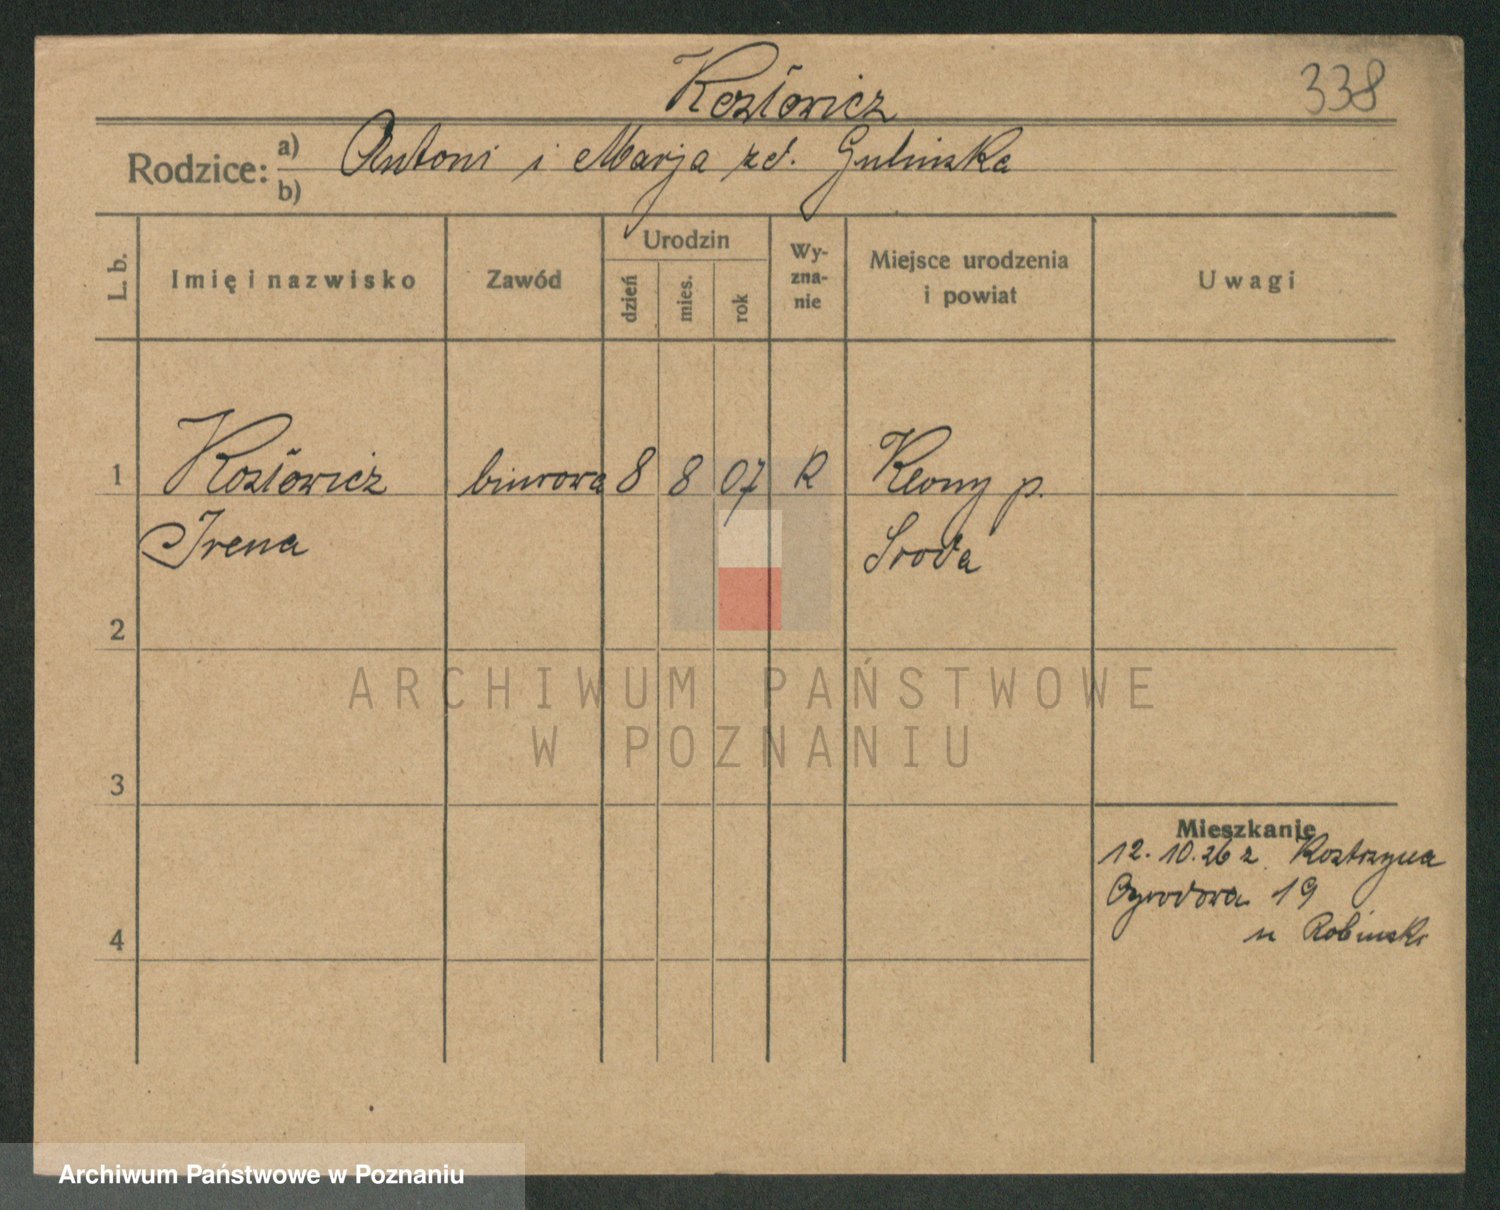 Kozłowicz
338
Rodzice: a) Antoni i Marja zd. Gulinska
b)
L. b.
Imię i nazwisko
Zawód
Urodzin
dzień
mies.
rok
Wy-
zna-
nie
Miejsce urodzenia
i powiat
Uwagi
1 Kozłowicz biurowa 8 8 07 R Klony p.
Irena Sroda
2
3
4
Mieszkanie
12.10.26 z Kostrzyna
Ogrodowa 19
u Robinski
ARCHIWUM PAŃSTWOWE
W POZNANIU
Archiwum Państwowe w Poznaniu